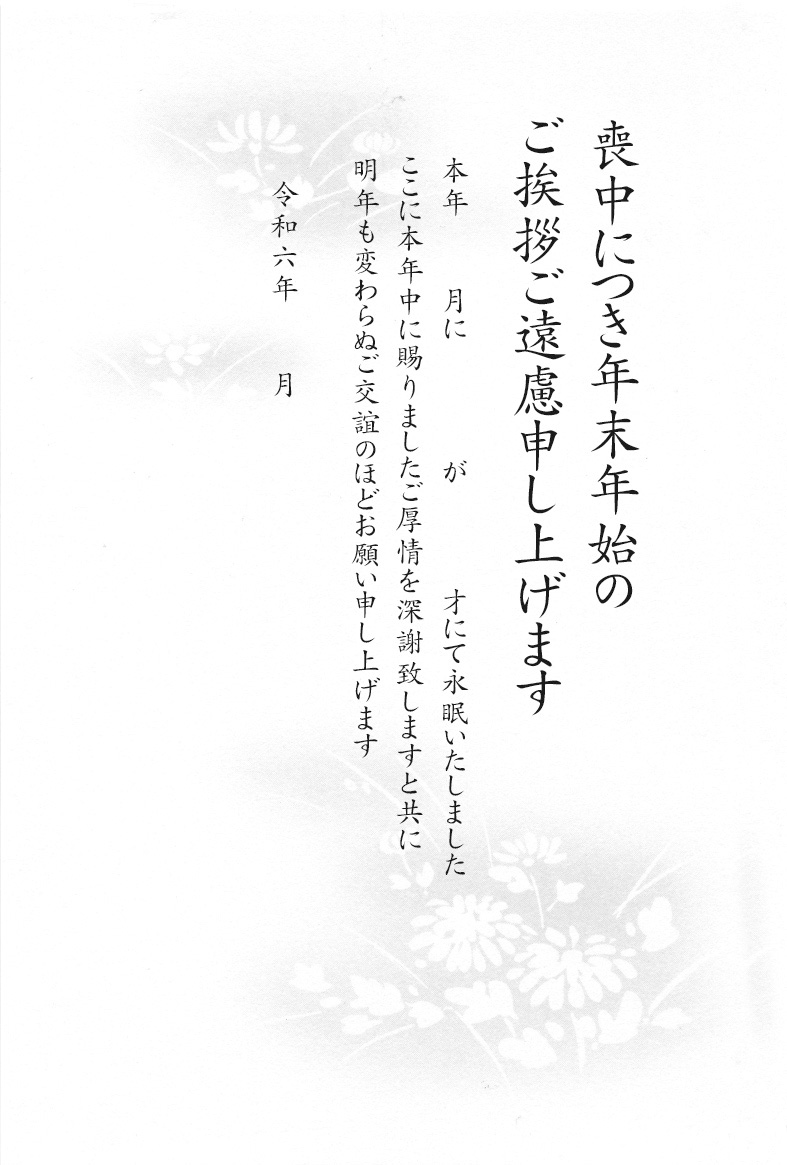 喪中につき年末年始の
ご挨拶ご遠慮申し上げます
本年　月に　　　が　　　才にて永眠いたしました
ここに本年中に賜りましたご厚情を深謝致しますと共に
明年も変わらぬご交誼のほどお願い申し上げます
令和六年　　月